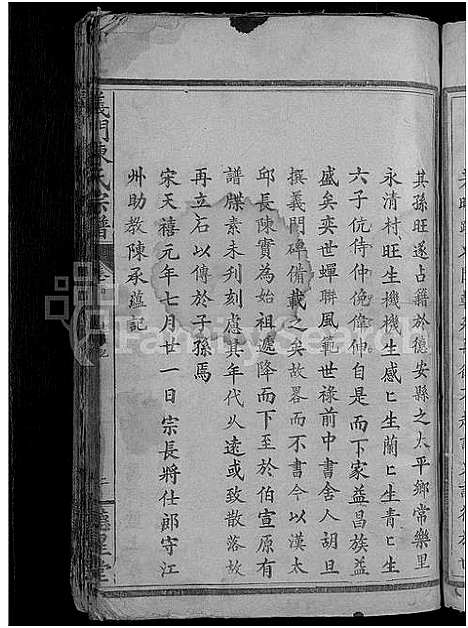 其孫旺遂占籍於德安縣之太平鄉常樂里
永清村旺生機機生感匕生蘭匕生青匕生
六子伉侍仲俛偉伸自是而下家益昌族益
盛矣奕世蟬聯風範世祿前中書舍人胡旦
撰義門碑備載之矣故畧而不書今以漢太
邱長陳實為始祖遞降而下至於伯宣原有
譜牒素未刋刻慮其年代乆遠或致散落故
再立石以傳於子孫焉
宋天禧元年七月廿一日宗長將仕郎守江
州助教陳承蘊記
義門陳氏宗譜
德星堂
FamilySearch